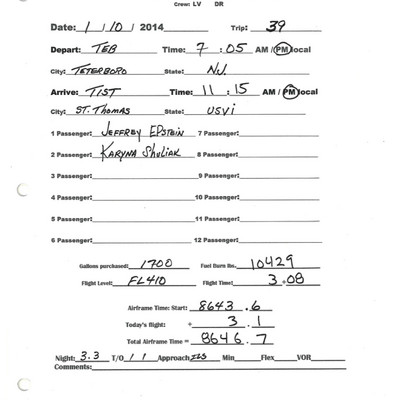 Crew: LV DR
Date: 1 / 10 / 2014 Trip: 39
Depart: TEB Time: 7 : 05 AM / PM local
City: TETERBORO State: NJ.
Arrive: TIST Time: 11 : 15 AM / PM local
City: ST. THOMAS State: USVI
1 Passenger: JEFFREY EPSTEIN 7 Passenger:
2 Passenger: KARYNA SHULIAK 8 Passenger:
3 Passenger: 9 Passenger:
4 Passenger: 10 Passenger:
5 Passenger: 11 Passenger:
6 Passenger: 12 Passenger:
Gallons purchased: 1700 Fuel Burn lbs. 10429
Flight Level: FL410 Flight Time: 3 + 08
Airframe Time: Start: 8643 . 6
Today's flight: + 3 . 1
Total Airframe Time = 8646 . 7
Night: 3.3 T/O 1 / 1 Approach ILS Min Flex VOR
Comments: